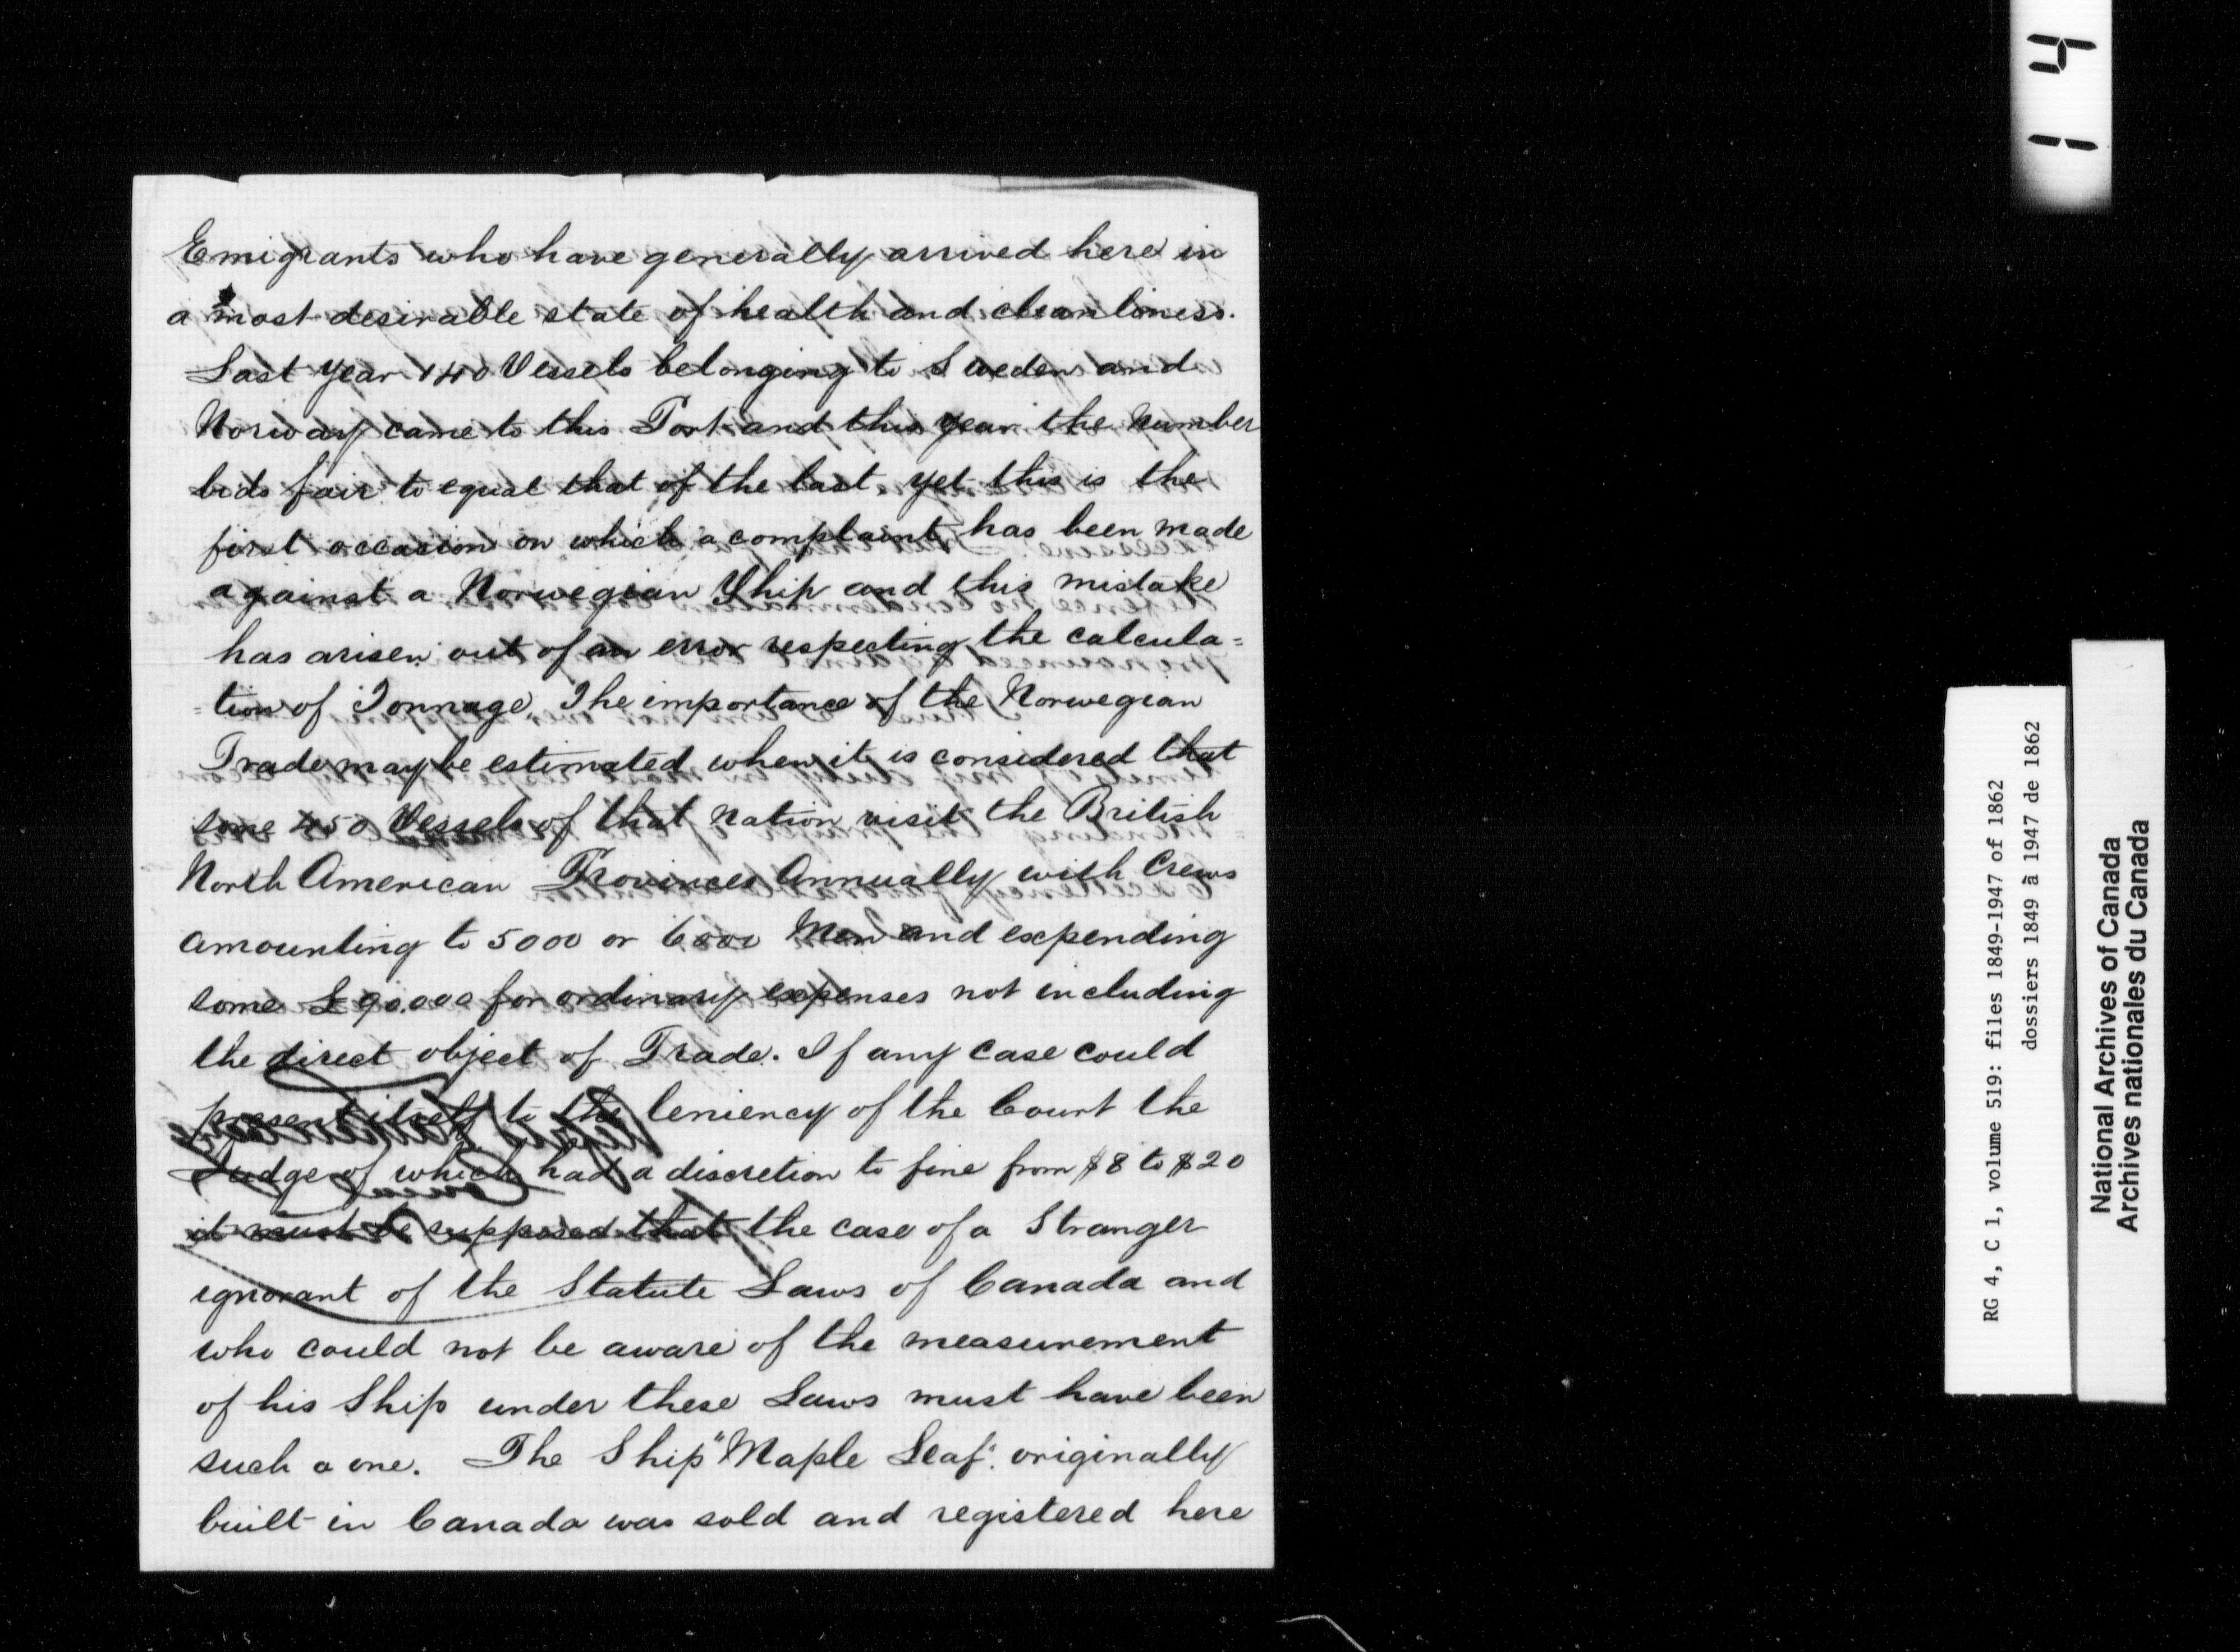 Emigrants who have generally arrived here in
a most desirable state of health and cleanliness.
Last year 140 Vessels belonging to Sweden and
Norway came to this Port and this year the Number
bids fair to equal that of the last, yet this is the
first occasion on which a complaint has been made
against a Norwegian Ship and this mistake
has arisen out of an error respecting the calcula=
=tion of Tonnage. The importance of the Norwegian
Trade may be estimated when it is considered that
some 450 Vessels of that Nation visit the British
North American Provinces Annually with Crews
amounting to 5000 or 6000 Men and expending
some £90.000 for ordinary expenses not including
the direct object of Trade. If any case could
present itself to the leniency of the Court the
Judge of which had a discretion to fine from $8 to $20
it must be supposed that the case of a Stranger
ignorant of the Statute Laws of Canada and
who could not be aware of the measurement
of his Ship under these Laws must have been
such a one. The Ship "Maple Leaf" originally
built in Canada was sold and registered here
14
RG 4, C 1, volume 519: files 1849-1947 of 1862
dossiers 1849 à 1947 de 1862
National Archives of Canada
Archives nationales du Canada